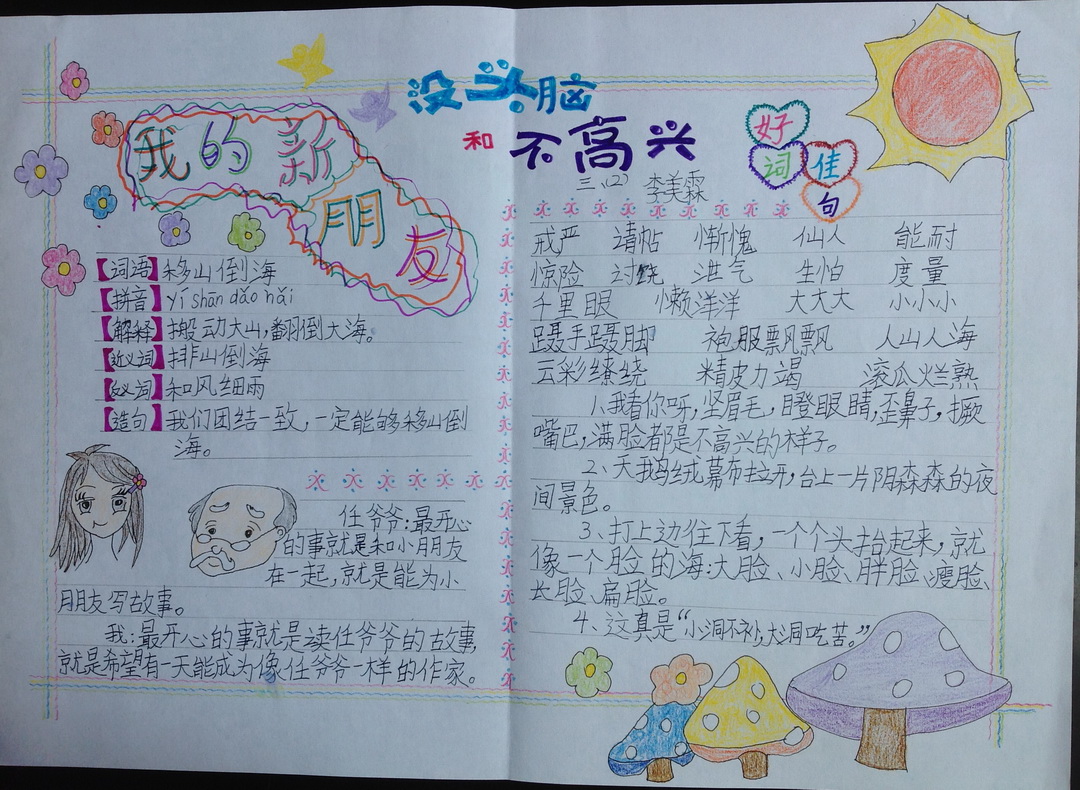 没头脑
和 不高兴
三、(2) 李美霖
我的新朋友
【词语】移山倒海
【拼音】yí shān dǎo hǎi
【解释】搬动大山,翻倒大海。
【近义词】排山倒海
【反义词】和风细雨
【造句】我们团结一致,一定能够移山倒
海。
任爷爷:最开心
的事就是和小朋友
在一起,就是能为小
朋友写故事。
我:最开心的事就是读任爷爷的故事,
就是希望有一天能成为像任爷爷一样的作家。
好词佳句
戒严 请帖 惭愧 仙人 能耐
惊险 讨饶 泄气 生怕 度量
千里眼 懒洋洋 大大大 小小小
蹑手蹑脚 袍服飘飘 人山人海
云彩缭绕 精皮力竭 滚瓜烂熟
1、我看你呀,竖眉毛,瞪眼睛,歪鼻子,撅
嘴巴,满脸都是不高兴的样子。
2、天鹅绒幕布拉开,台上一片阴森森的夜
间景色。
3、打上边往下看,一个个头抬起来,就
像一个脸的海:大脸、小脸、胖脸、瘦脸、
长脸、扁脸。
4、这真是“小洞不补,大洞吃苦。”